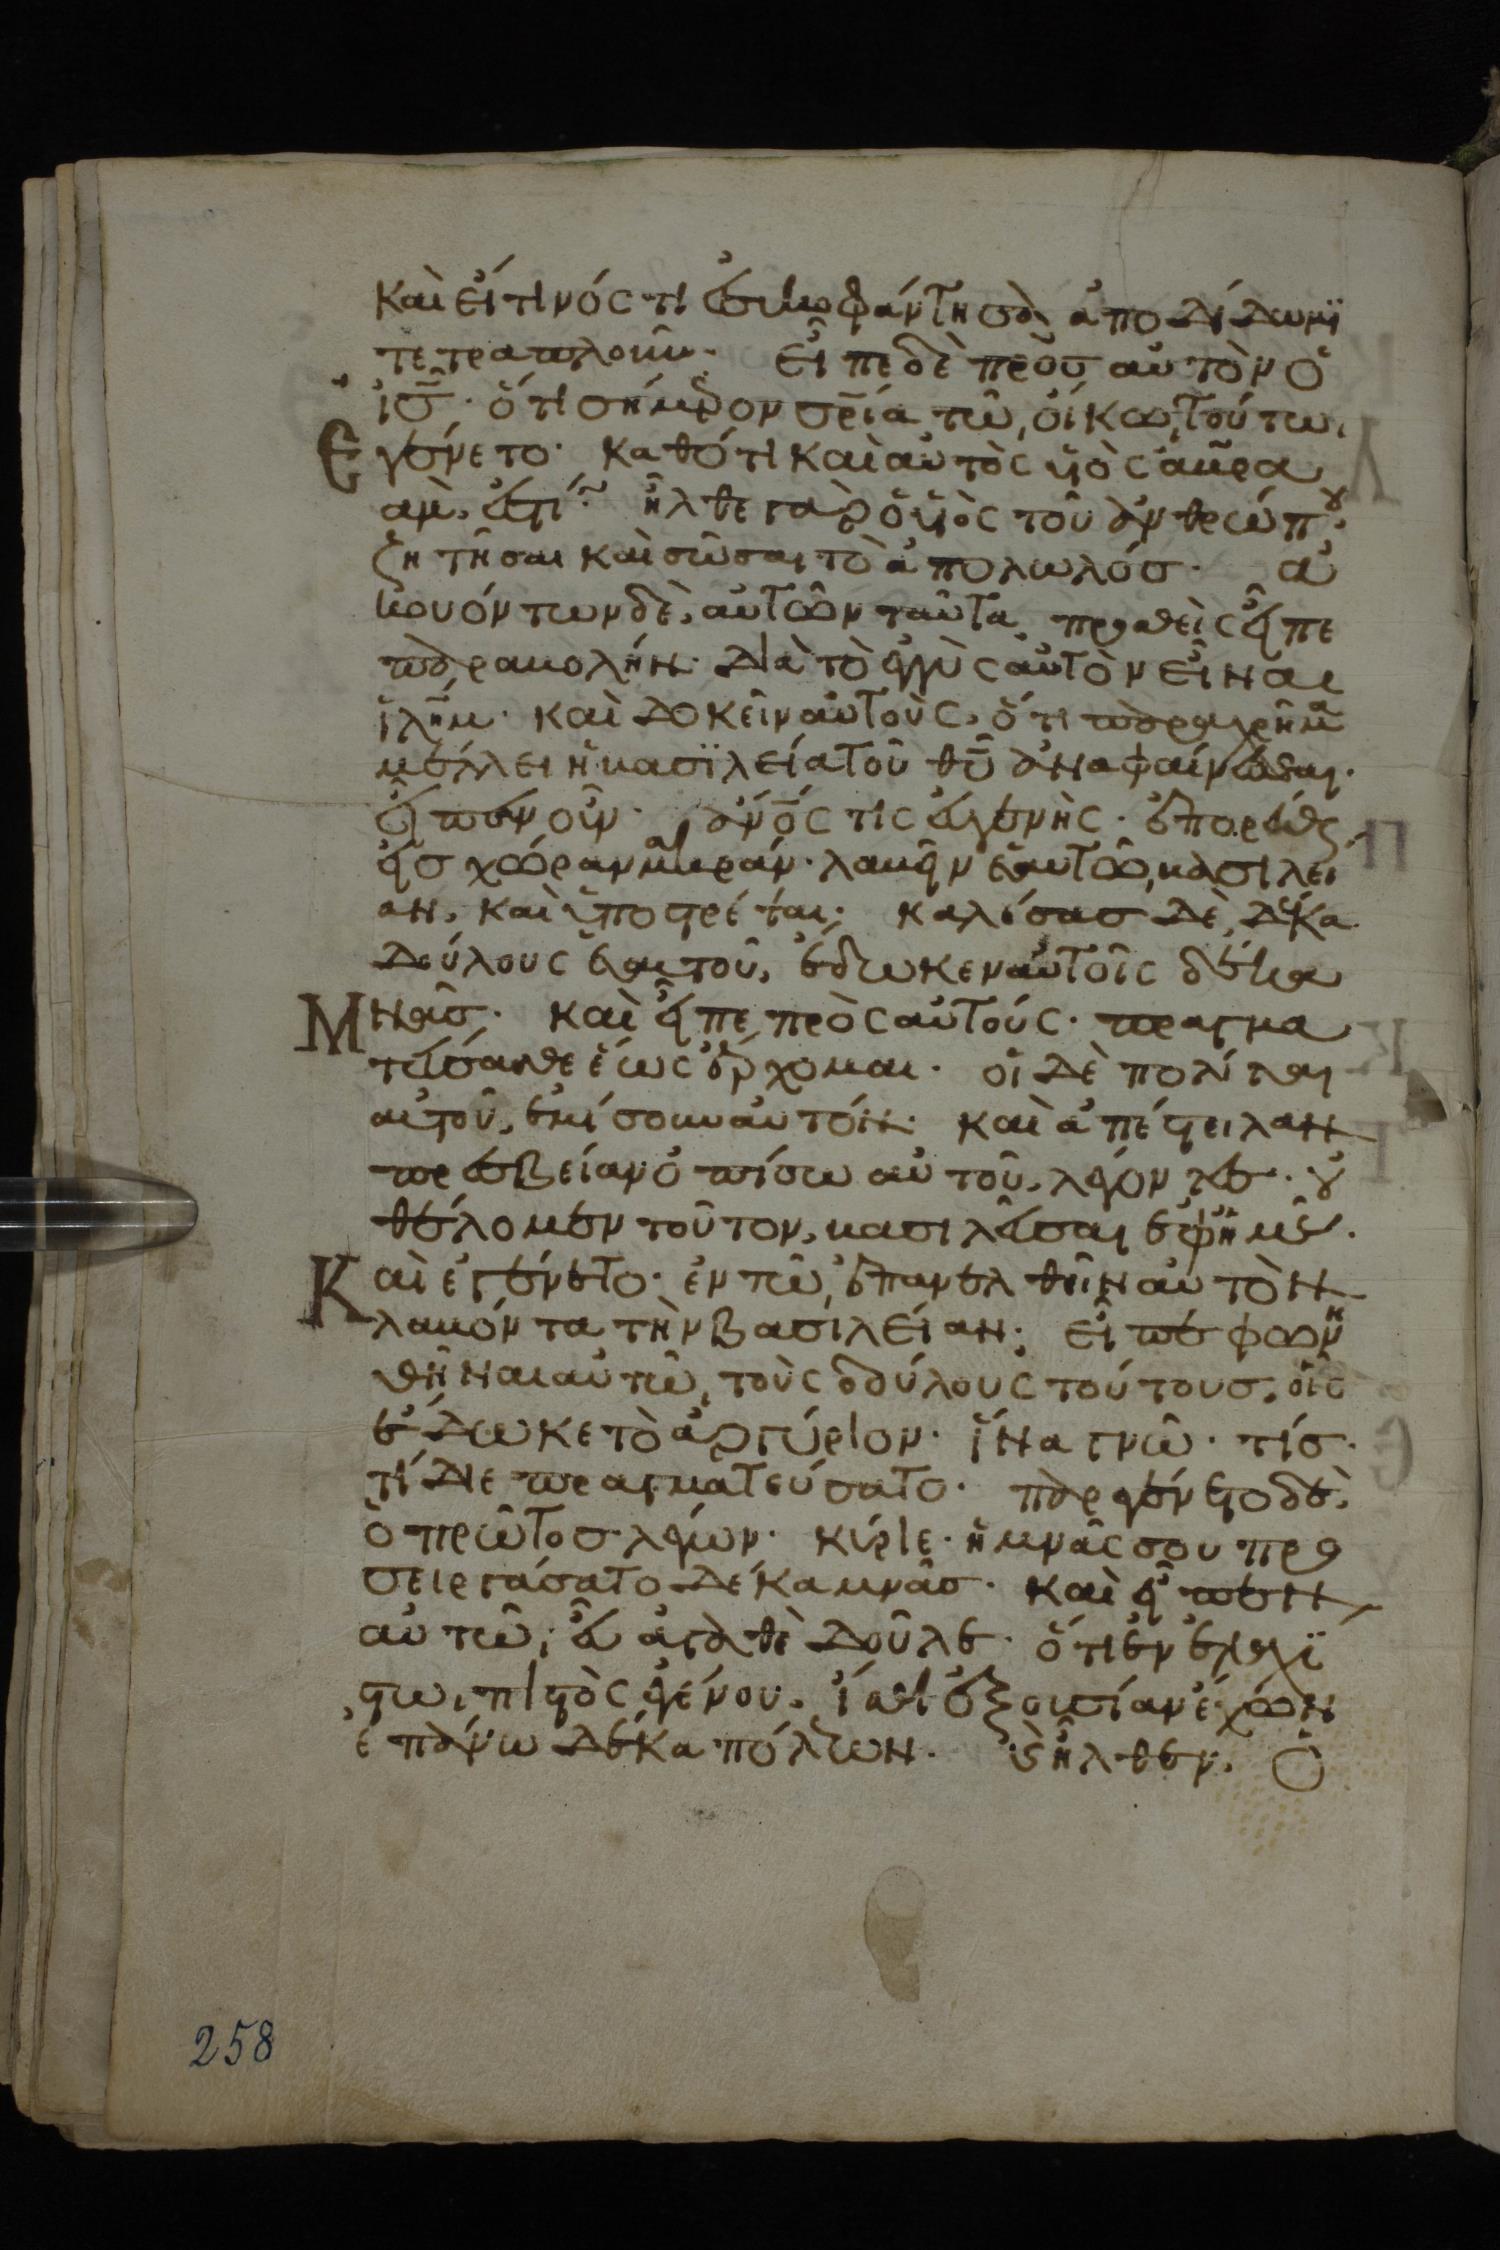 Και εἴ τινός τι ἐσυκοφάντησα, ἀποδίδωμι
τετραπλοῦν. εἶπε δὲ πρὸς αὐτὸν ὁ
ἰς̄. ὅτι σήμερον σρ̄ία τῶ οἴκω τούτω
ἐγένετο. καθότι καὶ αὐτὸς ὑὸς ἀβρα
αμ ἐστί. ἦλθε γὰρ ὁ ὑὸς τοῦ ἀνθρώπου
ζητῆσαι καὶ σῶσαι τὸ ἀπολωλός. ἀ
κουόντων δὲ αὐτῶν ταῦτα προσθεὶς εἶπε
παραβολήν. διὰ τὸ ἐγγὺς αὐτὸν εἶναι
ἰλῆμ. καὶ δοκεῖν αὐτοὺς, ὅτι παραχρῆμα
μέλλει ἡ βασιλεία τοῦ θῡ ἀναφαίνεσθαι.
εἶπεν οὖν. ἀν̄ος τις εὐγενὴς. ἐπορεύθη
εἰς χώραν μακράν. λαβεῖν ἑαυτῶ βασιλεί
αν, καὶ ὑποστρέψαι. καλέσας δὲ δέκα
δούλους ἑαυτοῦ, ἔδωκεν αὐτοῖς δέκα
μνᾶς. καὶ εἶπε πρὸς αὐτούς. πραγμα
τεύσασθε ἕως ἔρχομαι. οἱ δὲ πολῖται
αὐτοῦ, ἐμίσουν αὐτόν. καὶ ἀπέστειλαν
πρεσβείαν ὀπίσω αὐτοῦ, λέγοντες. οὐ
θέλομεν τοῦτον, βασιλεῦσαι ἐφ' ἡμᾶς.
Καὶ ἐγένετο. ἐν τῶ ἐπανελθεῖν αὐτὸν
λαβόντα τὴν βασιλείαν. εἶπε φωνη
θῆναι αὐτῶ τοὺς δούλους τούτους, οἷς
ἔδωκε τὸ ἀργύριον. ἵνα γνῶ. τίς
τί διεπραγματεύσατο. παρεγένετο δὲ
ὁ πρῶτος λέγων. κύριε. ἡ μνᾶς σου προ
σειργάσατο δέκα μνᾶς. καὶ εἶπεν
αὐτῶ, εὖ ἀγαθὲ δοῦλε. ὅτι ἐν ἐλαχί
στω πιστὸς ἐγένου. ἴσθι ἐξουσίαν ἔχων
ἐπάνω δέκα πόλεων. καὶ ἦλθεν ὁ
258